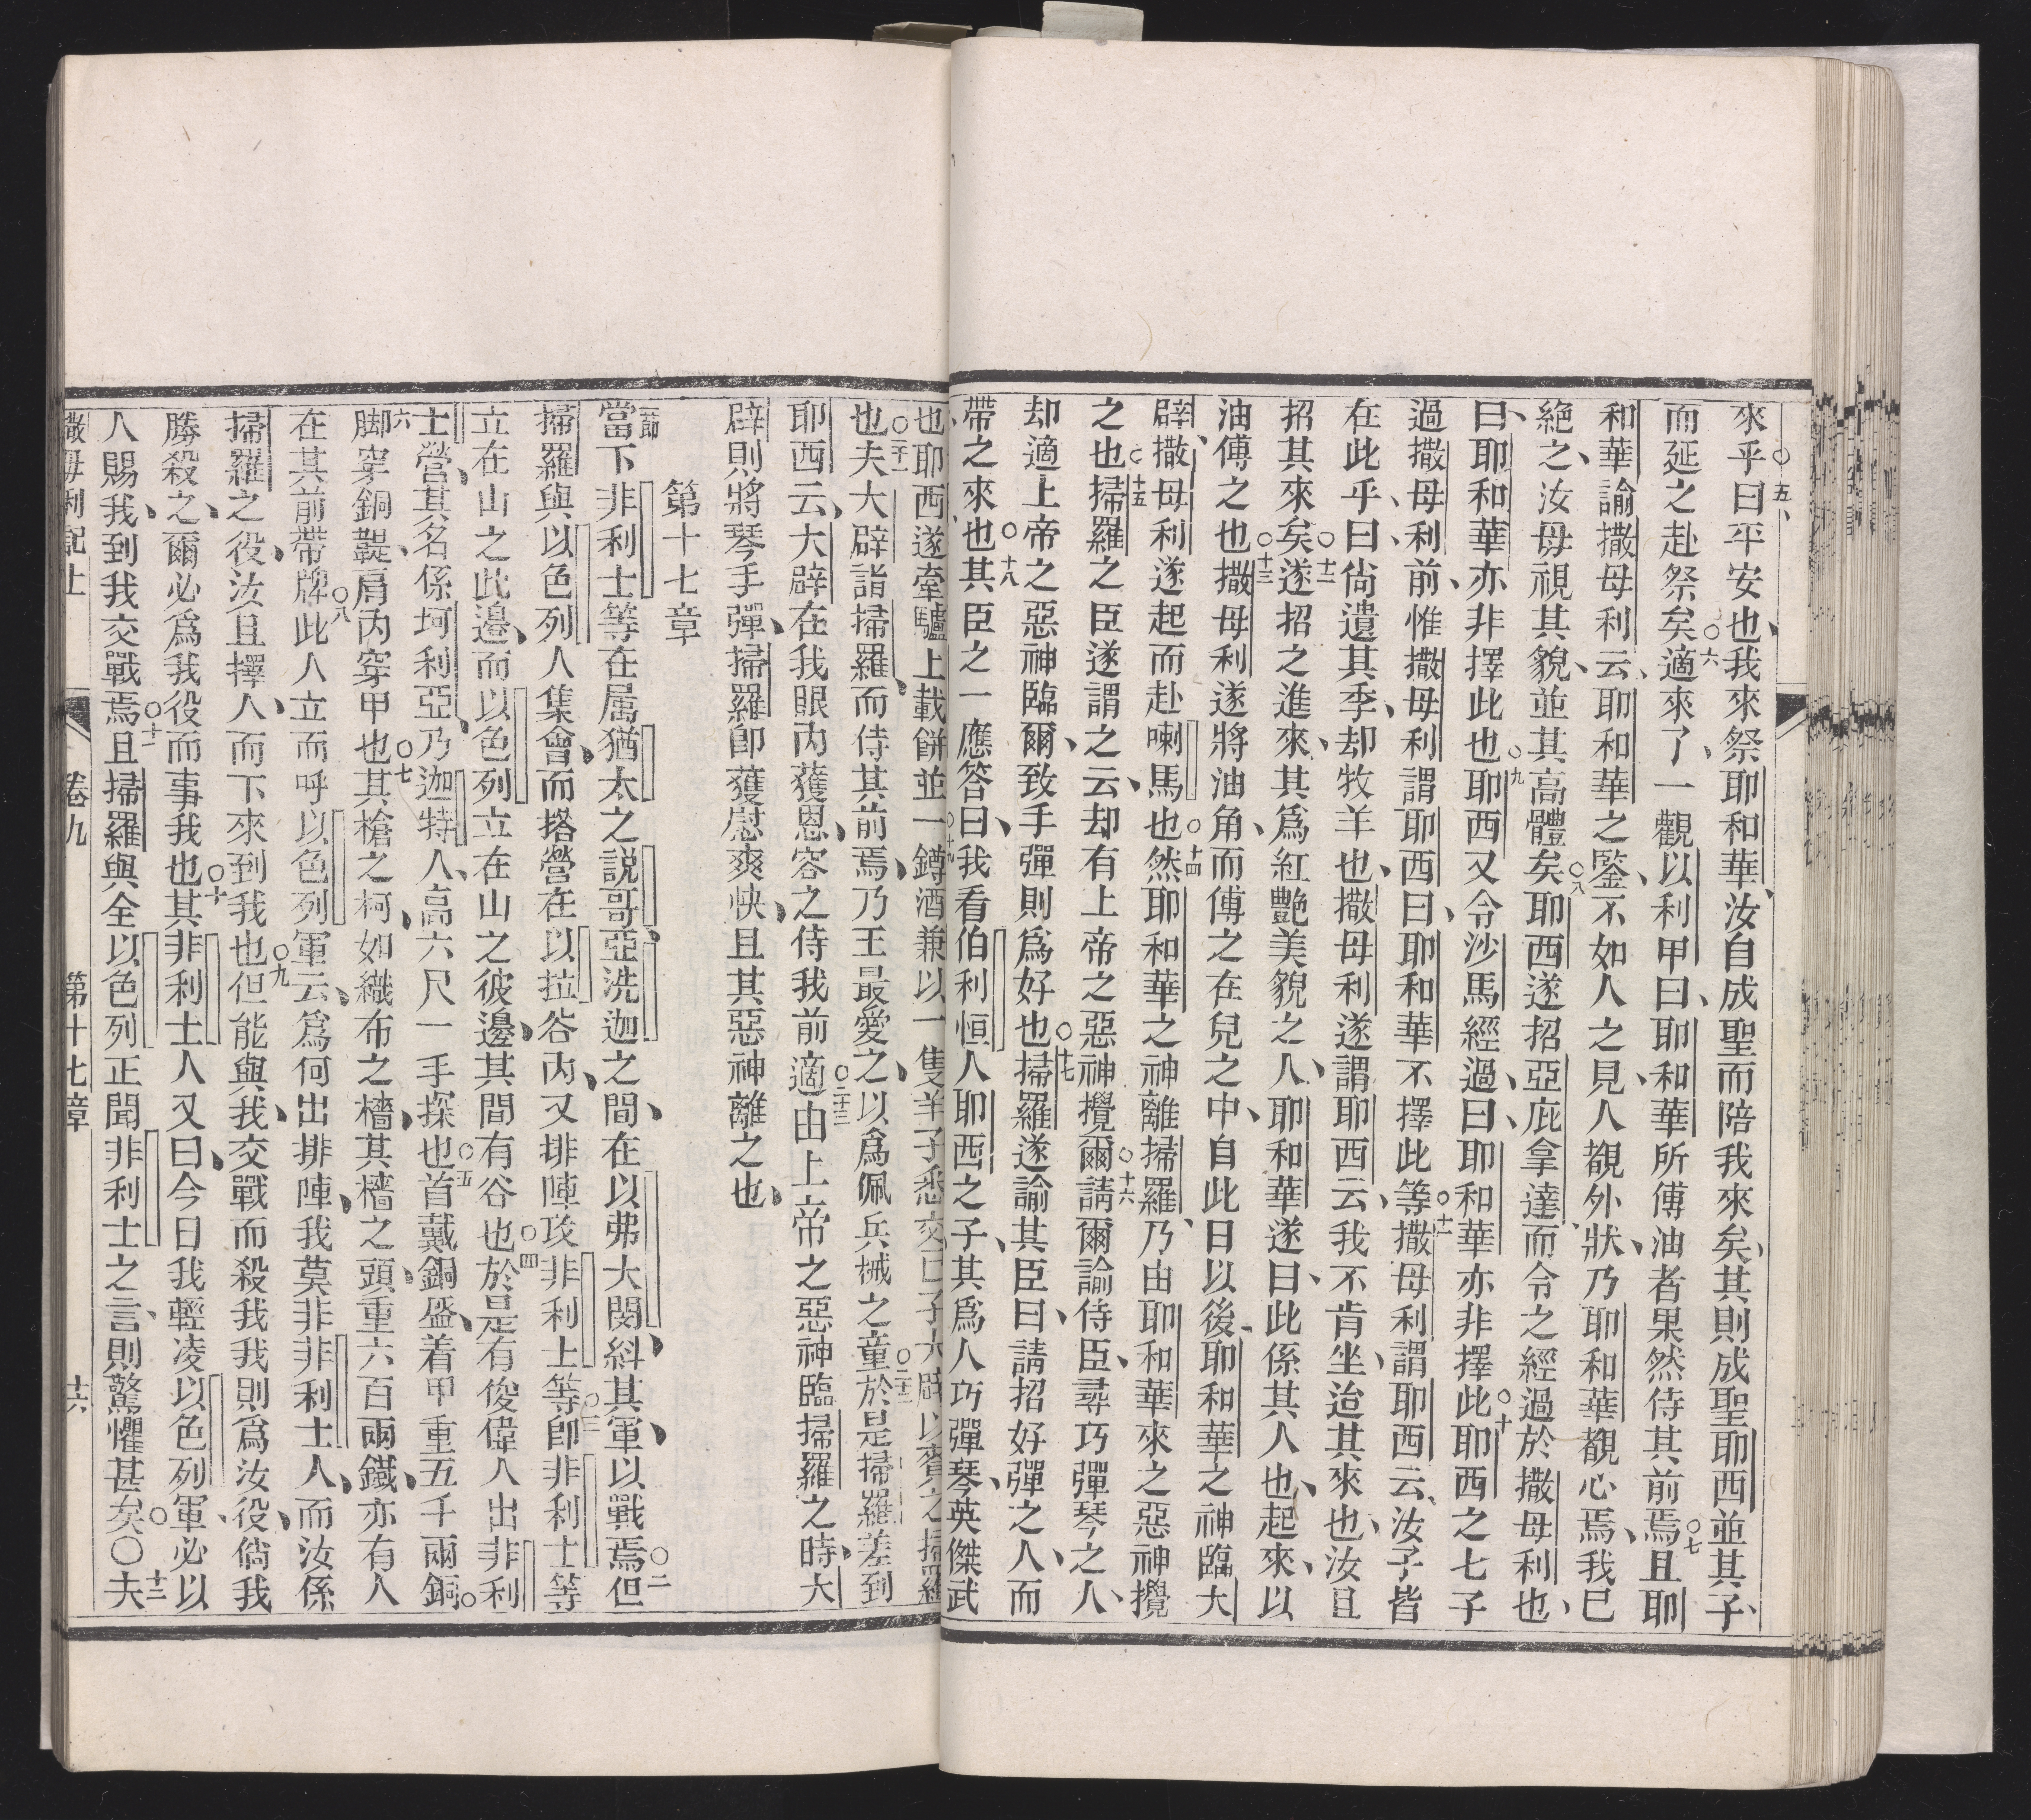 來乎曰平安也我來祭耶和華汝自成聖而陪我來矣其則成聖耶西並其子
而延之赴祭矣適來了一觀以利甲曰耶和華所傅油者果然侍其前焉且耶
和華諭撒母利云耶和華之鑒不如人之見人覩外狀乃耶和華覩心焉我已
絶之汝毋視其貌並其高體矣耶西遂招亞庇拿達而令之經過於撒母利也
曰耶和華亦非擇此也耶西又令沙馬經過曰耶和華亦非擇此耶西之七子
過撒母利前惟撒母利謂耶西曰耶和華不擇此等撒母利謂耶西云汝子皆
在此乎曰尙遺其季却牧羊也撒母利遂謂耶西云我不肯坐迨其來也汝且
招其來矣遂招之進來其爲紅艷美貌之人耶和華遂曰此係其人也起來以
油傅之也撒母利遂將油角而傅之在兒之中自此日以後耶和華之神臨大
辟撒母利遂起而赴喇馬也然耶和華之神離掃羅乃由耶和華來之惡神攪
之也掃羅之臣遂謂之云却有上帝之惡神攪爾請爾諭侍臣尋巧彈琴之人
却適上帝之惡神臨爾致手彈則爲好也掃羅遂諭其臣曰請招好彈之人而
帶之來也其臣之一應答曰我看伯利恒人耶西之子其爲人巧彈琴英傑武
也耶西遂牽驢上載餅並一罇酒兼以一隻羊子悉交己子大辟以賚之掃羅
也夫大辟詣掃羅而侍其前焉乃王最愛之以爲佩兵械之童於是掃羅差到
耶西云大辟在我眼內獲恩容之侍我前適由上帝之惡神臨掃羅之時大
辟則將琴手彈掃羅卽獲慰爽快且其惡神離之也
第十七章
一節
當下非利士等在属猶太之説哥亞洗迦之間在以弗大閔糾其軍以戰焉但
掃羅與以色列人集會而搭營在以拉谷內又排陣攻非利士等卽非利士等
立在山之此邊而以色列立在山之彼邊其間有谷也於是有俊偉人出非利
士營其名係坷利亞乃迦特人高六尺一手探也首戴銅盔着甲重五千兩銅
脚穿銅鞮肩內穿甲也其槍之柯如織布之檣其檣之頭重六百兩鐵亦有人
在其前帶牌此人立而呼以色列軍云爲何出排陣我莫非非利士人而汝係
掃羅之役汝且擇人而下來到我也但能與我交戰而殺我我則爲汝役倘我
勝殺之爾必爲我役而事我也其非利士人又曰今日我輕凌以色列軍必以
人賜我到我交戰焉且掃羅與全以色列正聞非利士之言則驚懼甚矣〇夫
撒母利記上 卷九 第十七章 十六